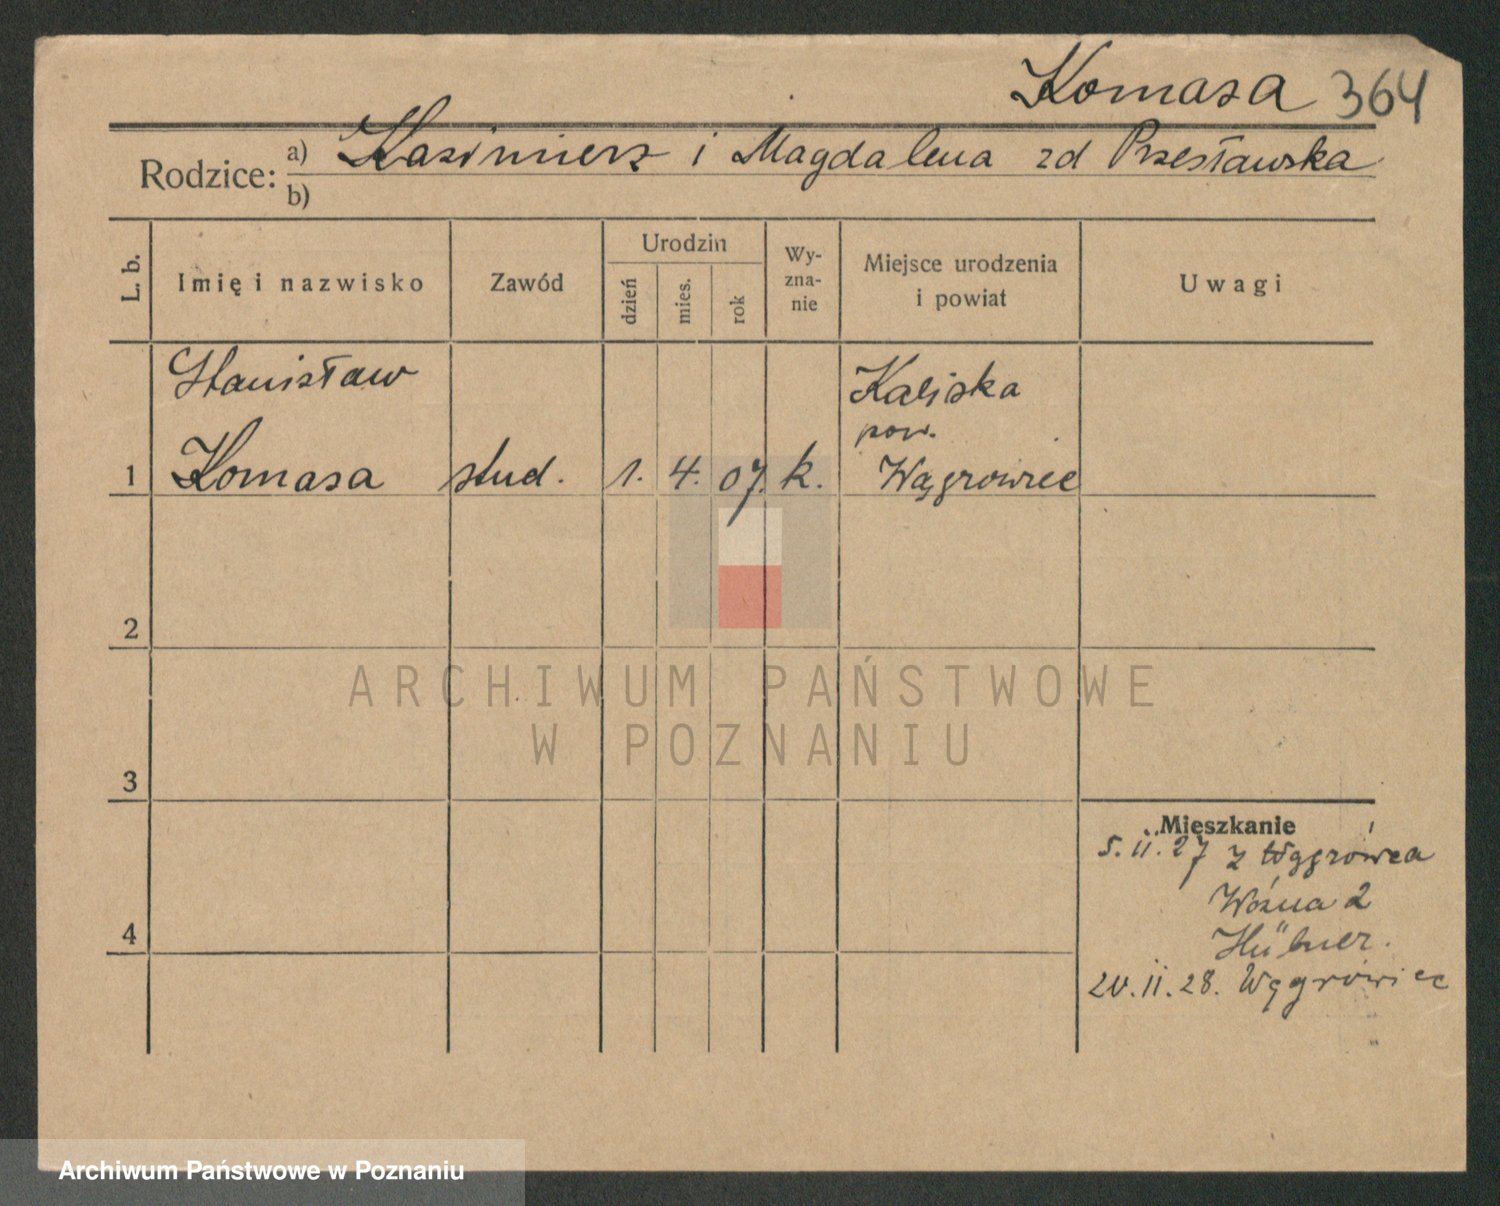 Komasa 364
Rodzice: a) Kazimierz i Magdalena zd Przesławska
b)
L. b. Imię i nazwisko Zawód Urodzin dzień mies. rok Wy-zna-nie Miejsce urodzenia i powiat Uwagi
Stanisław Kaliska
pow.
1 Komasa stud. 1. 4. 07. k. Wągrowiec
2
ARCHIWUM PAŃSTWOWE
W POZNANIU
3
Mieszkanie
5.II.27 z Wągrówca
Woźna 2
4
Hübner.
20.II.28. Wągrówiec
Archiwum Państwowe w Poznaniu